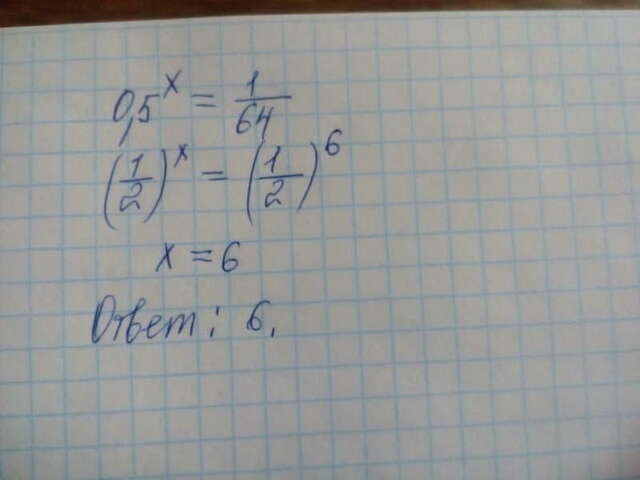 0,5^x = 1/64
(1/2)^x = (1/2)^6
x = 6
Ответ: 6.